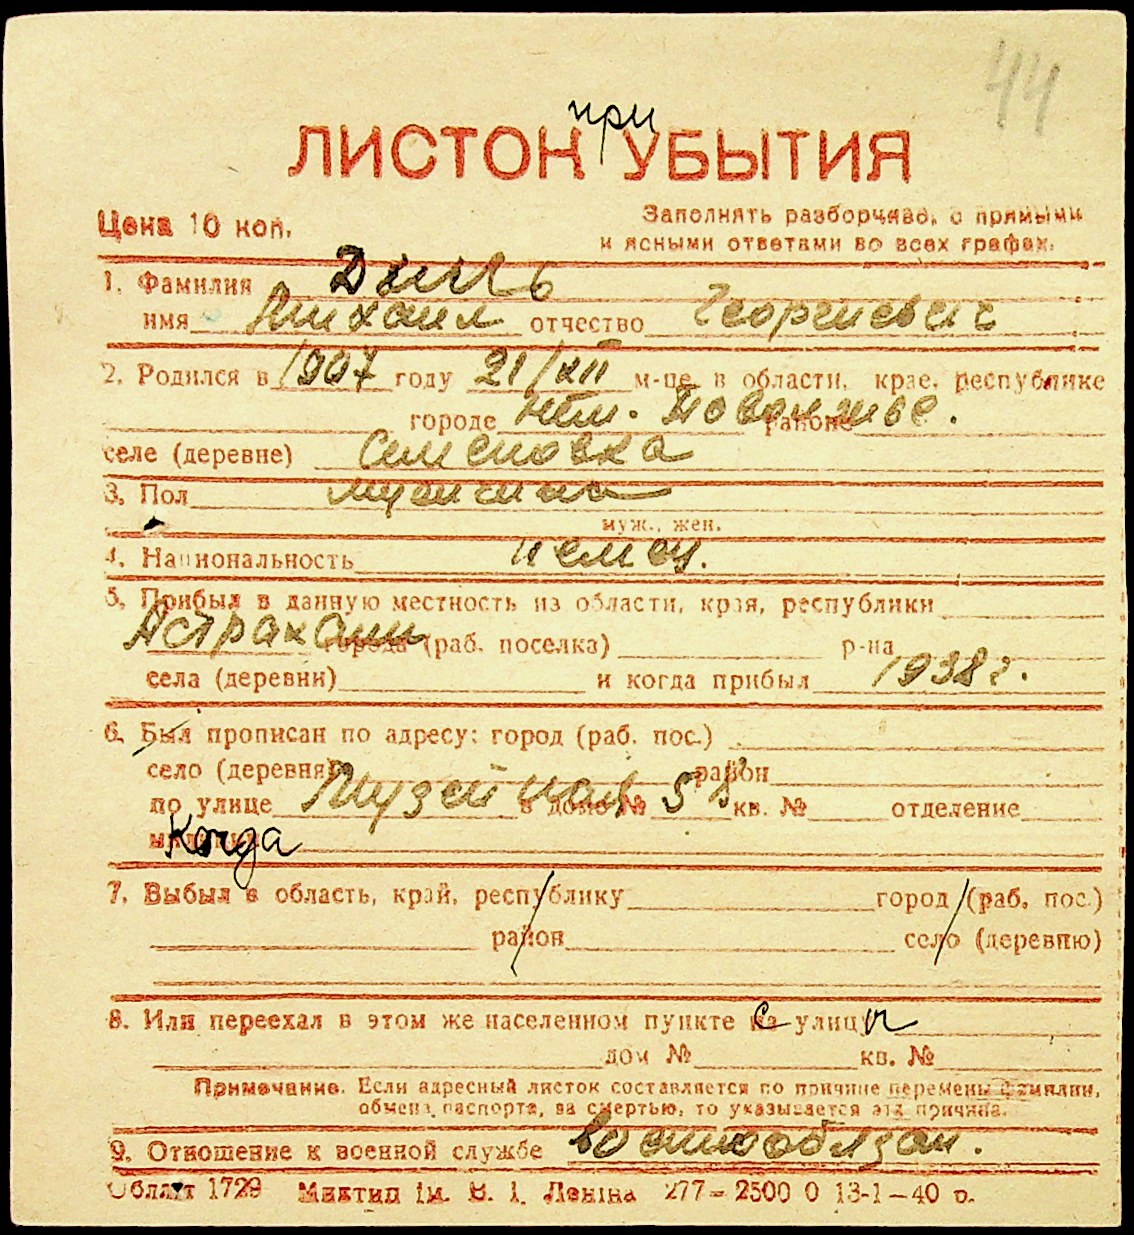 44
при
ЛИСТОК УБЫТИЯ
Цена 10 коп.
Заполнять разборчиво, с прямыми
и ясными ответами во всех графах.
1. Фамилия
имя Михаил отчество Георгиевич
2. Родился в 1907 году 21/XII м-це, в области, крае, республике
городе районе
селе (деревне) Семеновка
3. Пол мужчина
муж., жен.
4. Национальность немец.
5. Прибыл в данную местность из области, края, республики
Астрахани города (раб. поселка) р-на
села (деревни) и когда прибыл 1938 г.
6. Был прописан по адресу: город (раб. пос.)
село (деревня) район
по улице Музейная в доме № 51 кв. № отделение
милиции Когда
7. Выбыл в область, край, республику город (раб. пос.)
район село (деревню)
8. Или переехал в этом же населенном пункте с улицы
дом № кв. №
Примечание. Если адресный листок составляется по причине перемены фамилии,
обмена паспорта, за смертью, то указывается эта причина.
9. Отношение к военной службе военнообязан.
Обліт 1729 Миктип ім. В. І. Леніна 277–2500 0 13-1–40 р.